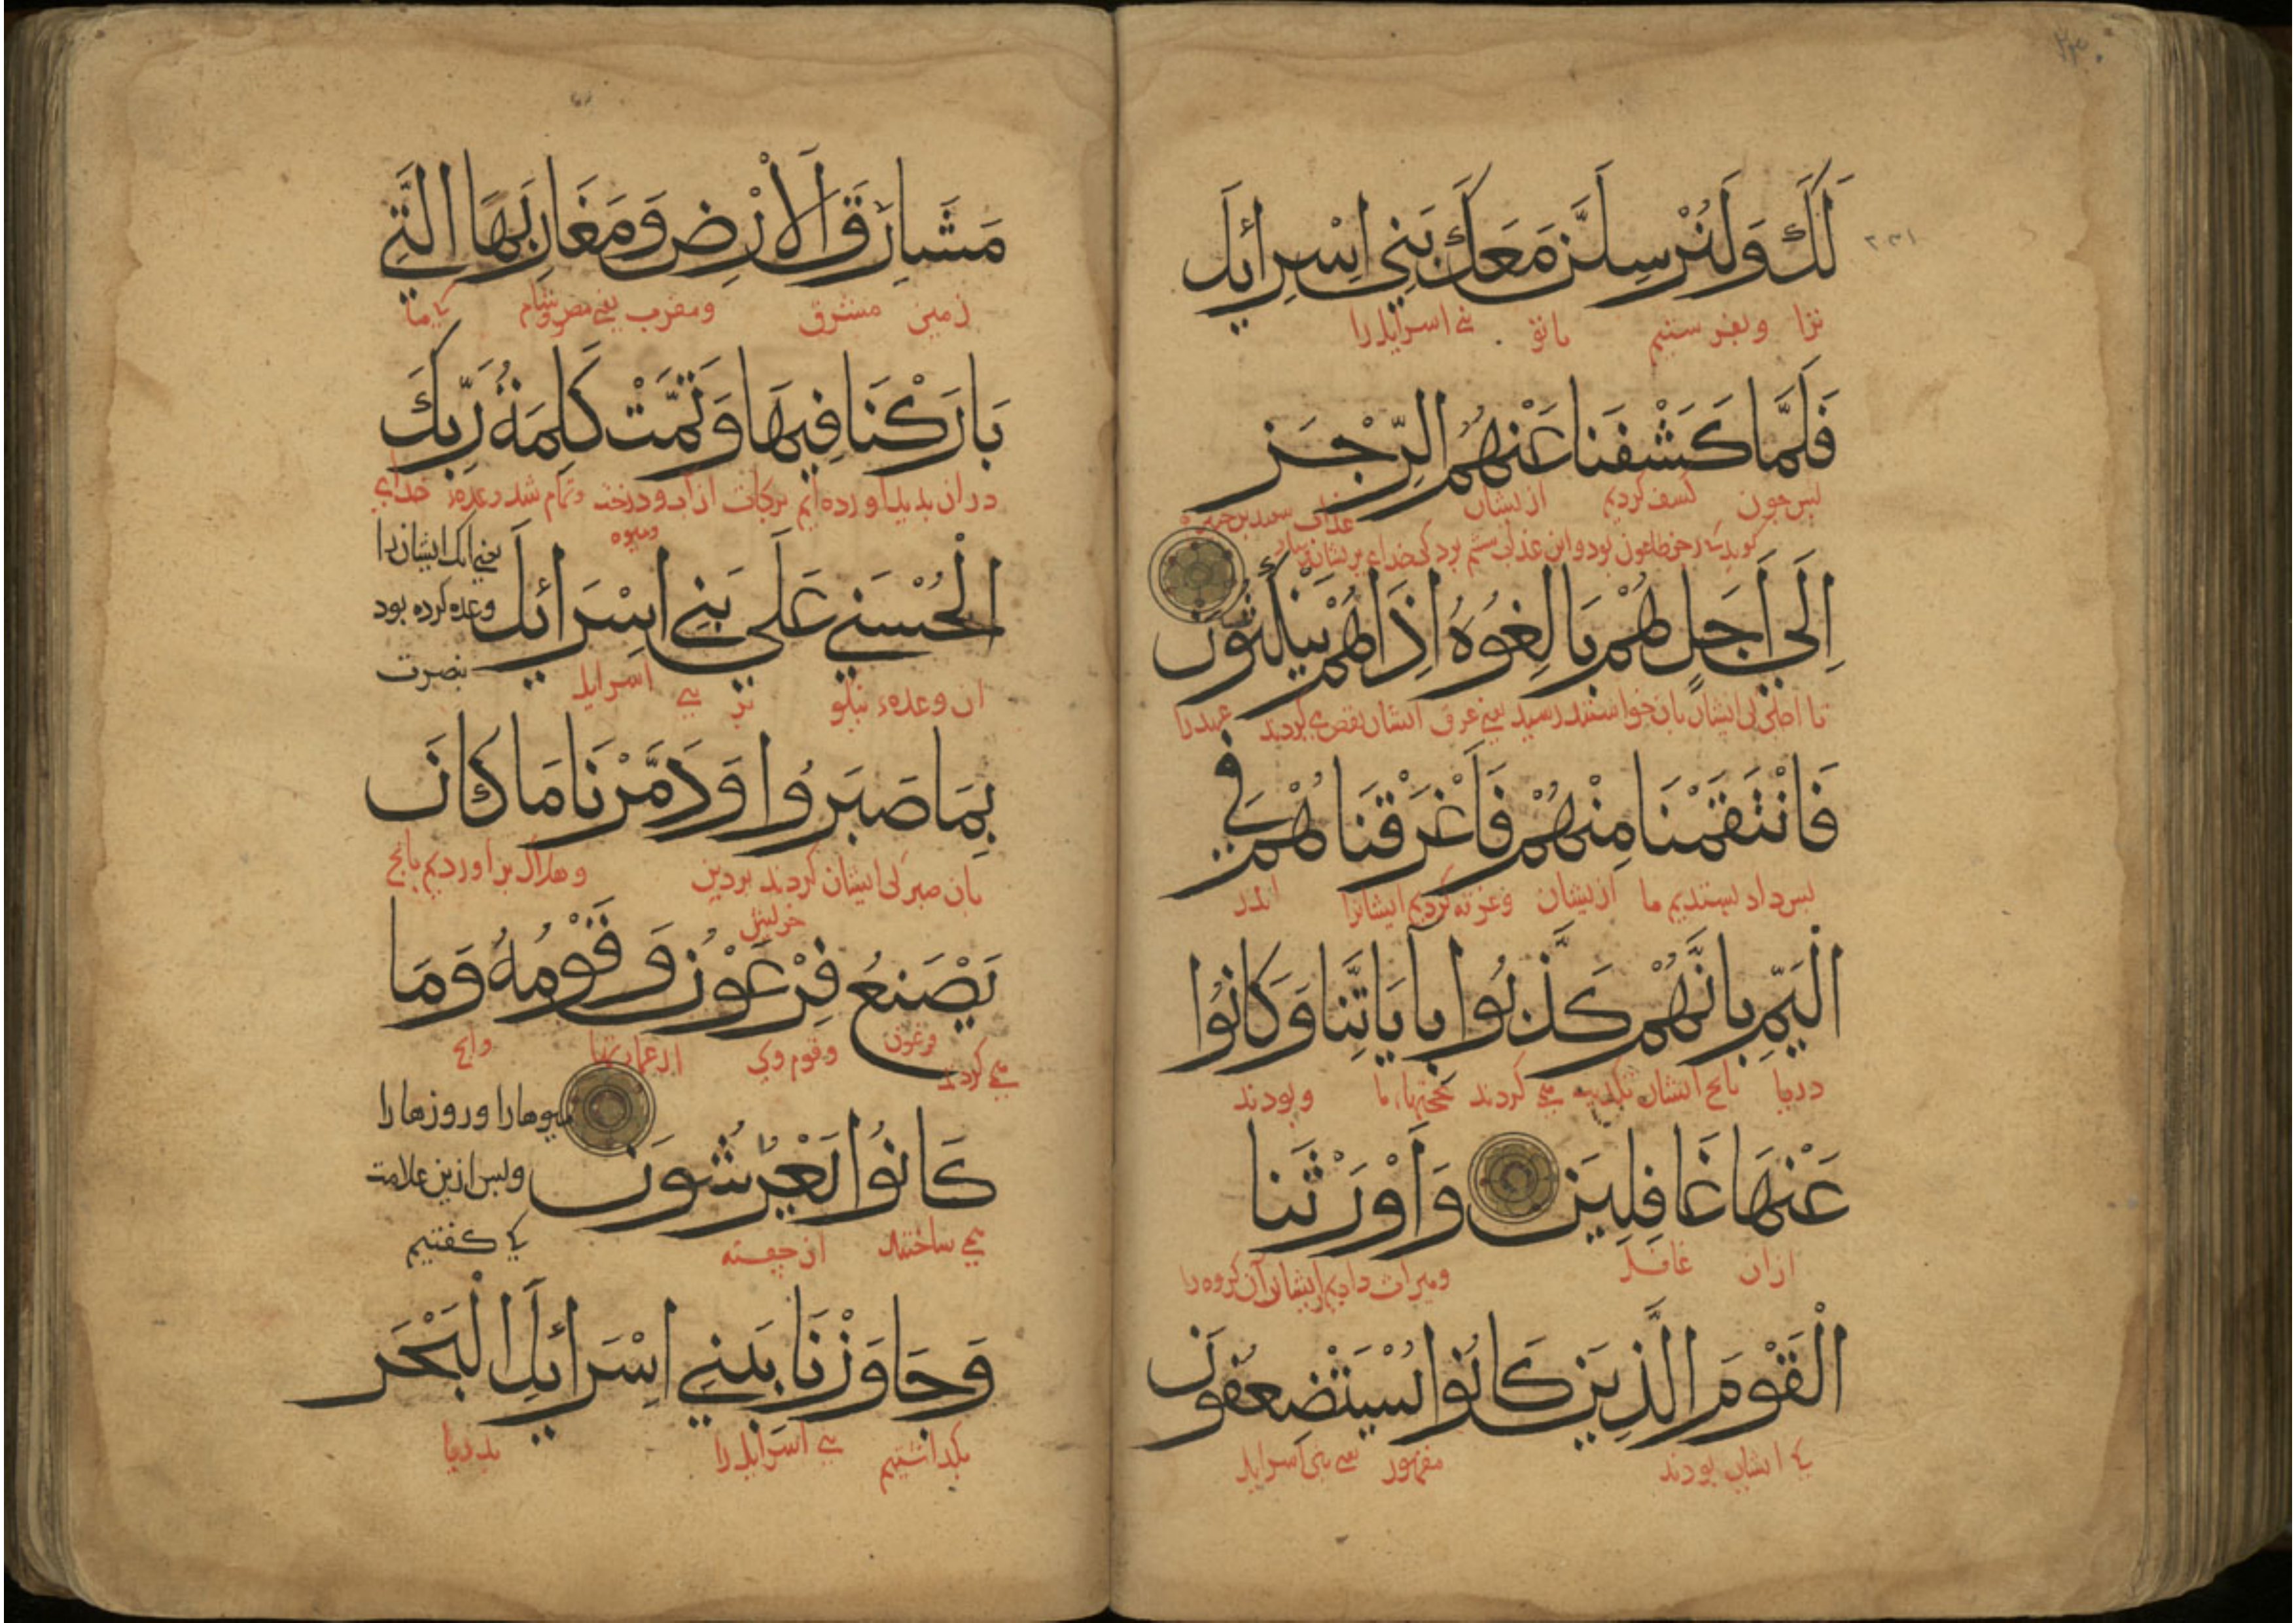 لَكَ وَلَنُرْسِلَنَّ مَعَكَ بَنِي اِسْرائِلَ
ترا وبفرستیم باتو بنی اسرایل را
فَلَمَّا كَشَفْنَا عَنْهُمُ الرِّجْزَ
پس جون کشف کردیم ازیشان
عذاب سعید بن جبیر
اِلَى اَجَلٍ هُمْ بَالِغُوهُ اِذَا هُمْ يَنْكُثُونَ
تا اجلی کی ایشان بان خواستند رسید یعنی غرق ایشان نقض می کردند عهد را
فَانْتَقَمْنَا مِنْهُمْ فَاَغْرَقْنَاهُمْ فِي
پس داد بستدیم ما ازیشان وغرقه کردیم ایشانرا اندر
الْيَمِّ بِاَنَّهُمْ كَذَّبُوا بِاٰيَاتِنَا وَكَانُوا
دریا بانج ایشان می کردند بحجتهاء ما وبودند
عَنْهَا غَافِلِينَ وَاَوْرَثْنَا
ازان غافل ومیراث دادیم آن کروه را
الْقَوْمَ الَّذِينَ كَانُوا يُسْتَضْعَفُونَ
کی ایشان بودند مقهور یعنی بنی اسرایل
مَشَارِقَ الْاَرْضِ وَمَغَارِبَهَا الَّتِي
زمین مشرق ومغرب یعنی مصر وشام کی ما
بَارَكْنَا فِيهَا وَتَمَّتْ كَلِمَةُ رَبِّكَ
دران بدید آورده ایم برکات از آب ودرخت وتمام شد وعده خدای
ومیوه
الْحُسْنَى عَلَى بَنِي اِسْرَائِلَ
یعنی انک ایشان را
وعده کرده بود
بنصرت
ان وعدهء نیکو بر بنی اسرایل
بِمَا صَبَرُوا وَدَمَّرْنَا مَا كَانَ
بان صبر کی ایشان کردند بر دین وهلاک براوردیم بانج
خویش
يَصْنَعُ فِرْعَوْنُ وَقَوْمُهُ وَمَا
می کردند فرعون وقوم وی از عمارتها وانج
كَانُوا يَعْرُشُونَ
میوها را وروزها را
وپس ازین علامت
کی کفتیم
می ساختند از جفته
وَجَاوَزْنَا بِبَنِي اِسْرَائِلَ الْبَحْرَ
بکذاشتیم بنی اسرایل را بدریا